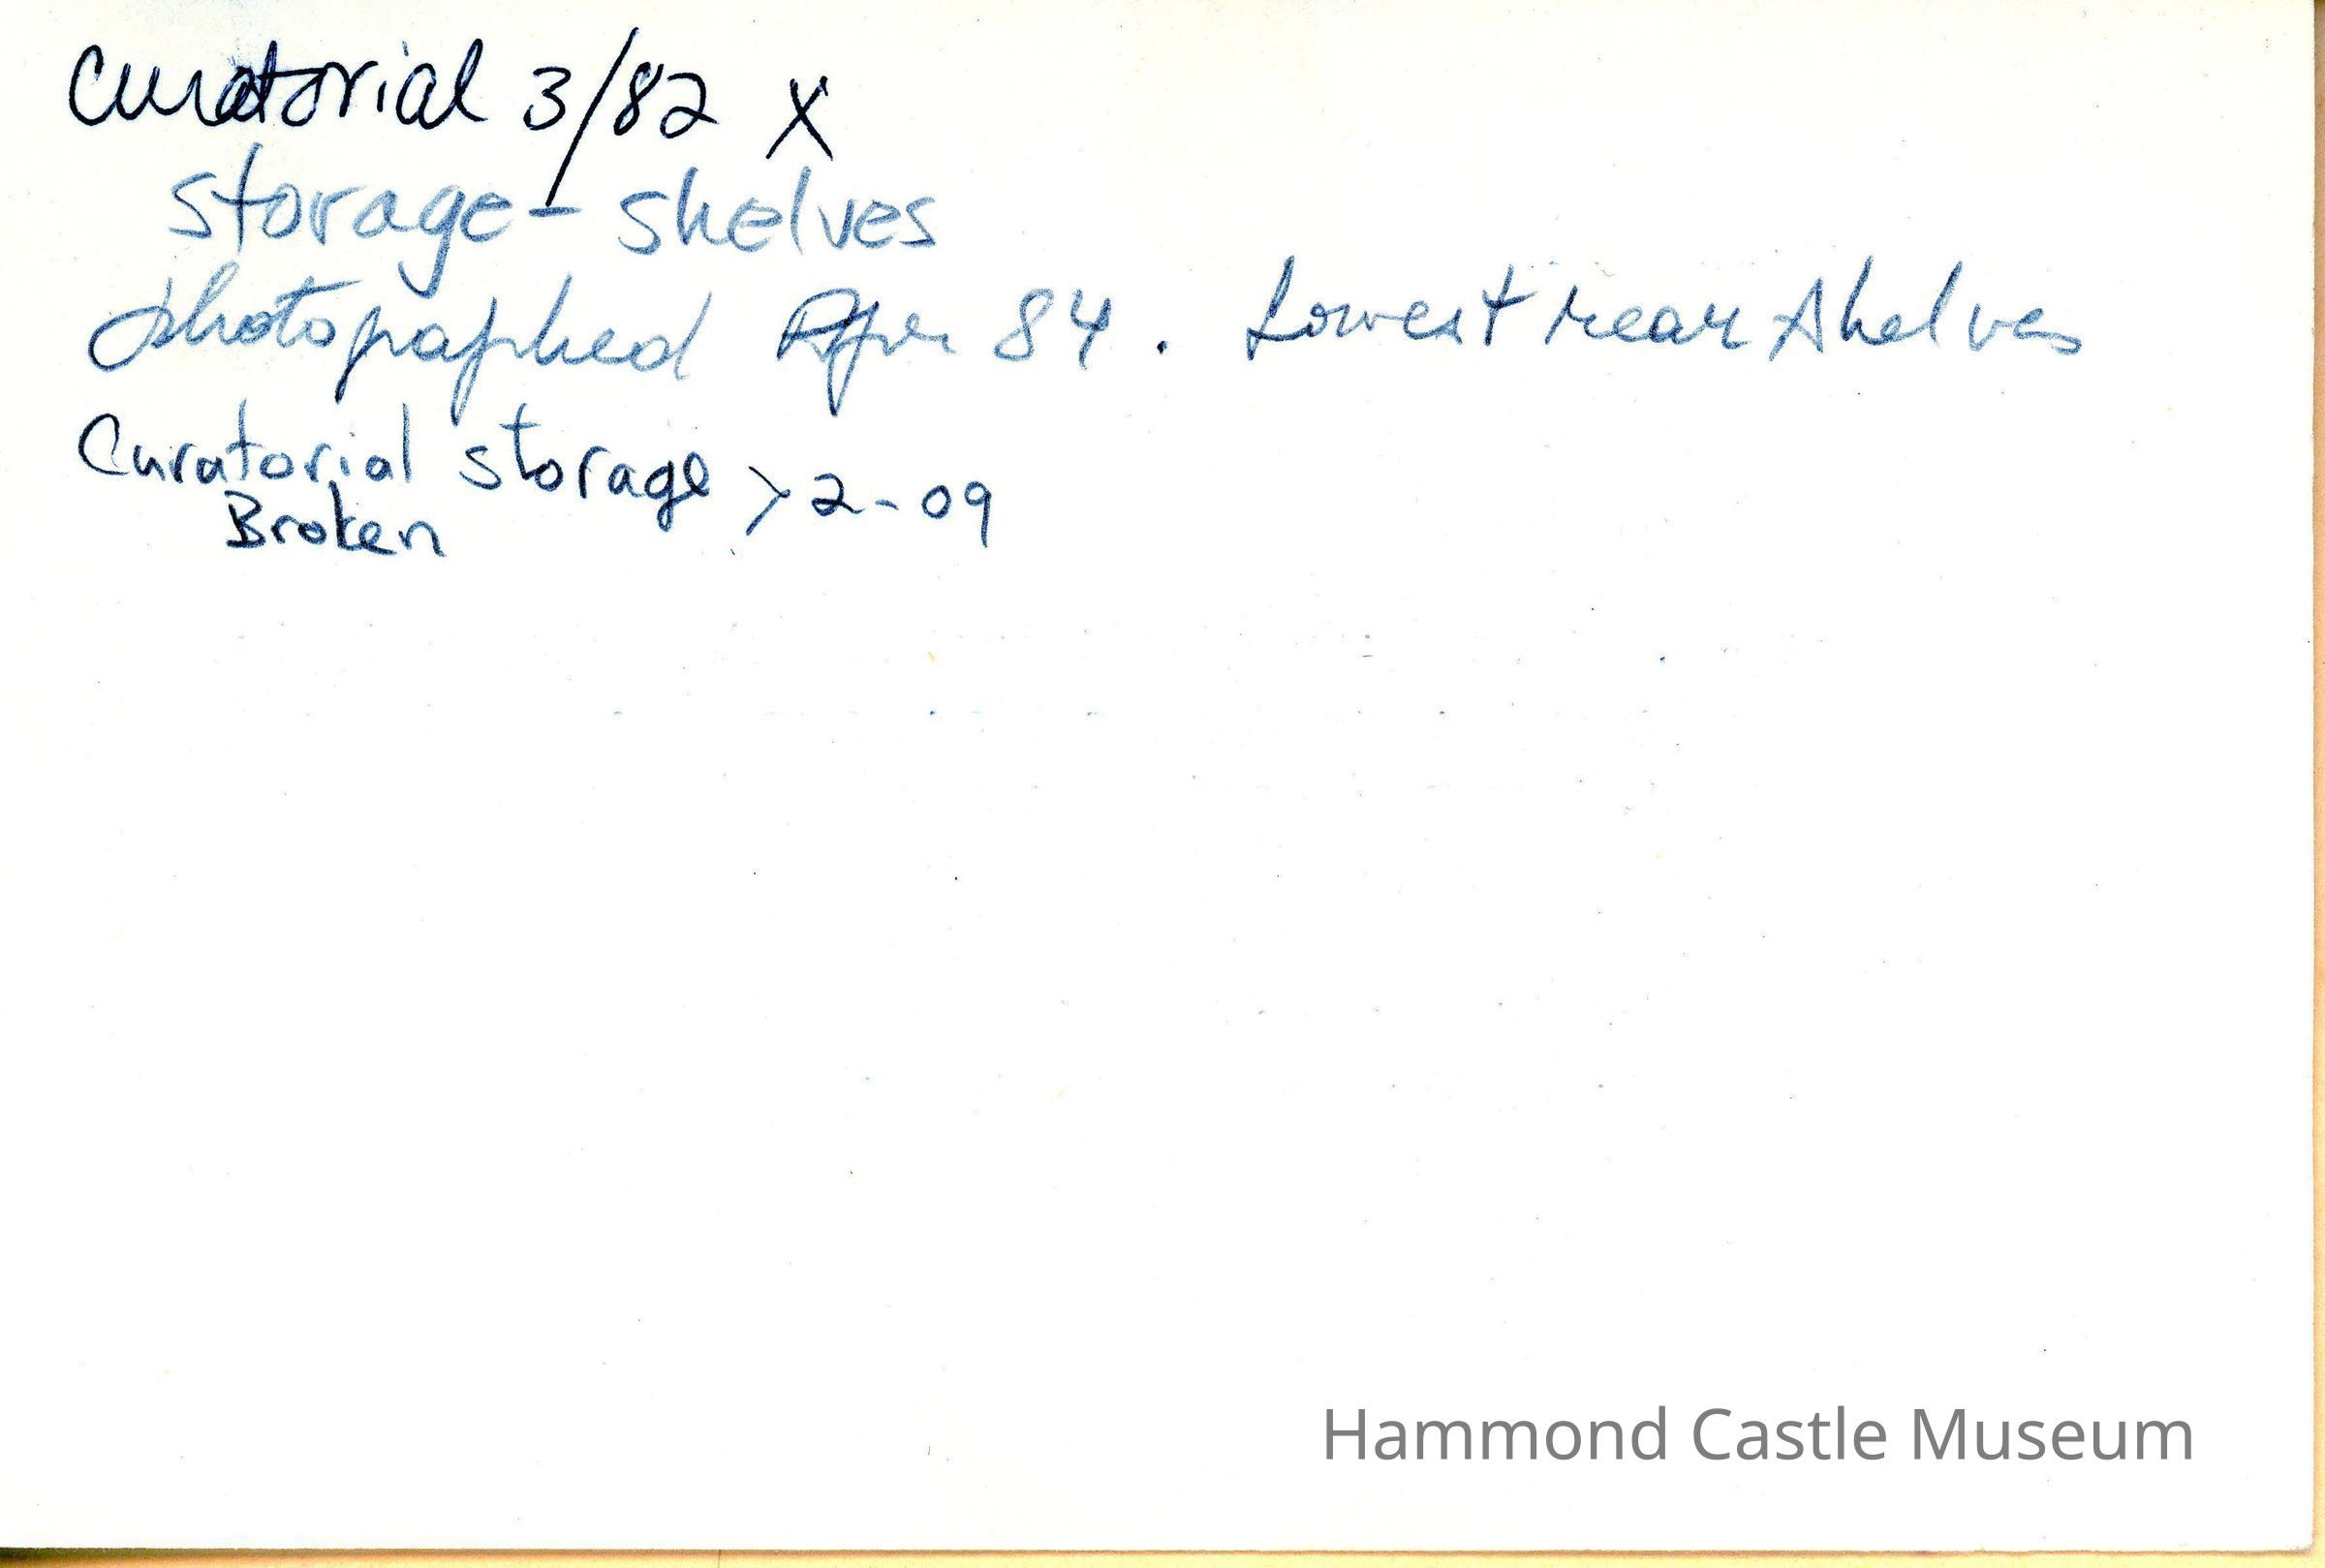 Curatorial 3/82 X
storage - shelves
photographed Apr 84. Lowest rear shelves
Curatorial storage > 2-09
Broken
Hammond Castle Museum